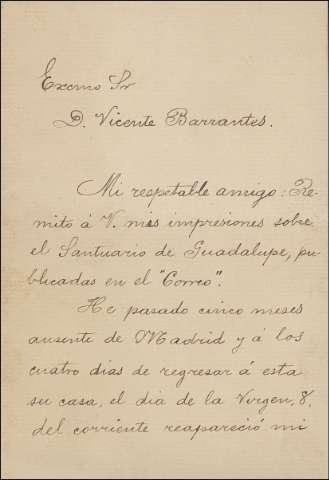 Excmo Sr
D. Vicente Barrantes.
Mi respetable amigo: Re-
mito á V. mis impresiones sobre
el Santuario de Guadalupe, pu-
blicadas en el "Correo".
He pasado cinco meses
ausente de Madrid y á los
cuatro dias de regresar á esta
su casa, el dia de la Virgen, 8,
del corriente reapareció mi